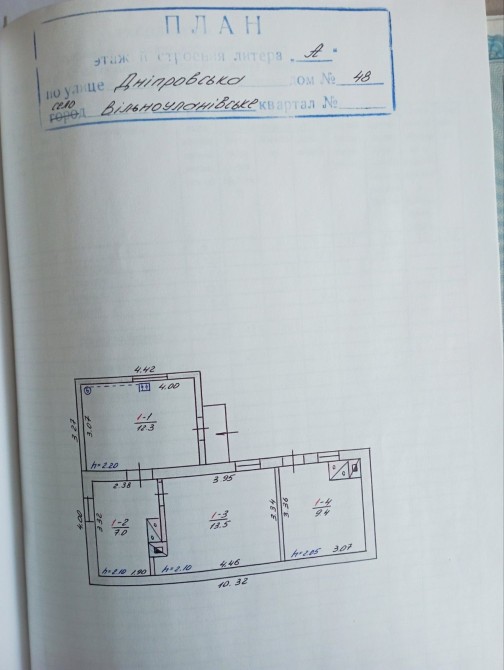 ПЛАН
этаж в строения литера "А"
по улице Дніпровська дом № 48
село
город Вільноуланівське квартал №
4.42
4.00
3.27
3.07
1-1
12.3
h=2.20
2.38
3.95
4.00
3.32
1-2
7.0
1-3
13.5
3.34
3.36
1-4
9.4
h=2.10
1.90
h=2.10
4.46
h=2.05
3.07
10.32